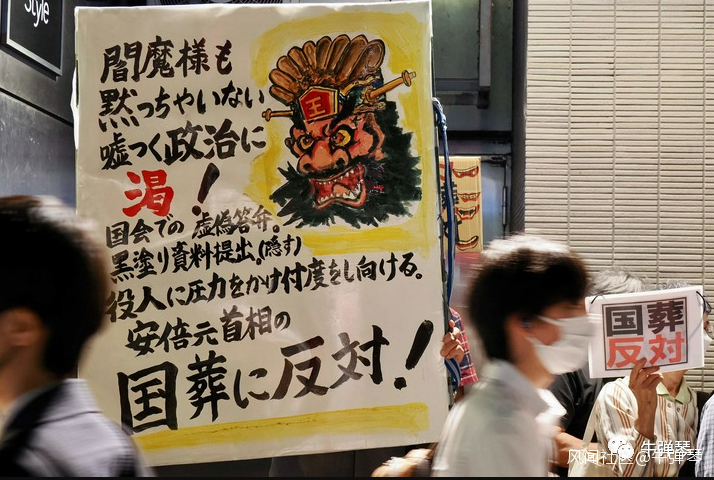 Style
閻魔様も
黙っちゃいない
嘘つく政治に
渇！
王
国会での虚偽答弁。
黒塗り資料提出。(隠す)
役人に圧力をかけ忖度をし向ける。
安倍元首相の
国葬に反対！
国葬
反対
牛弹琴
风闻社区@牛弹琴